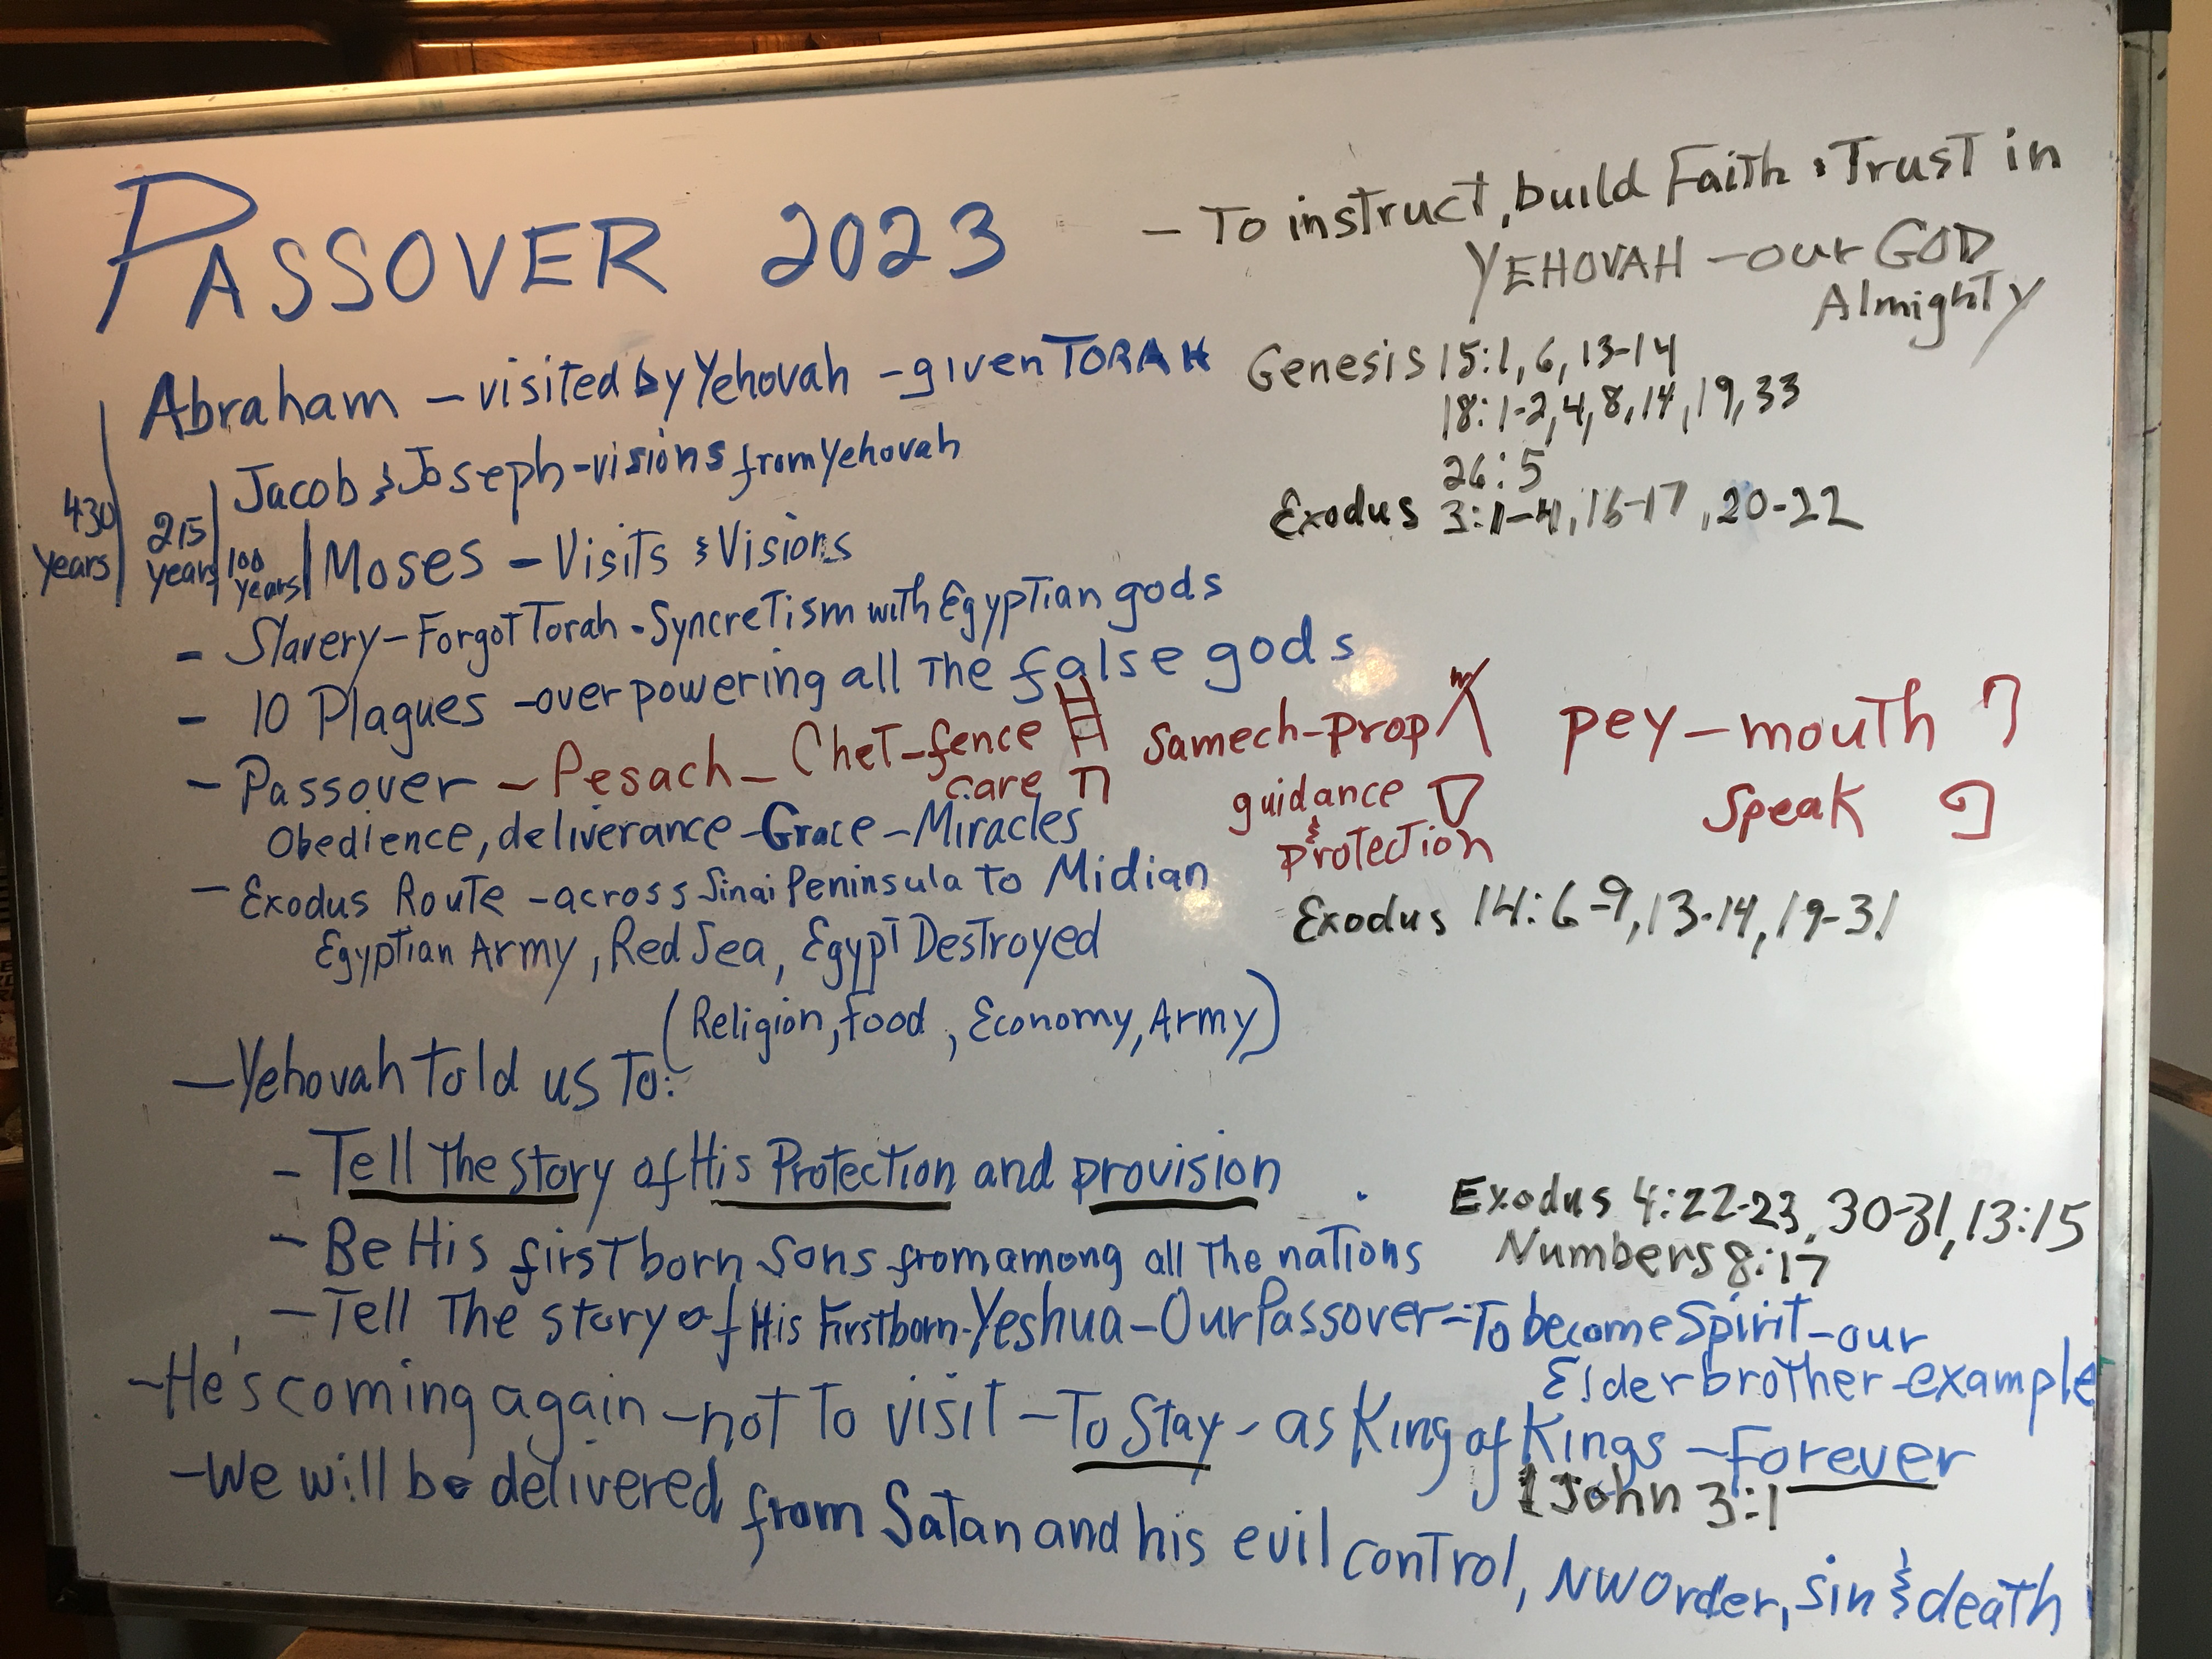 PASSOVER 2023
- To instruct, build Faith & Trust in
YEHOVAH - our GOD
Almighty
Abraham - visited by Yehovah - given TORAH
Genesis 15:1, 6, 13-14
18:1-2, 4, 8, 14, 19, 33
26:5
Jacob & Joseph - visions from Yehovah
Exodus 3:1-4, 16-17, 20-22
430 years
215 years
100 years
Moses - Visits & Visions
- Slavery - Forgot Torah - Syncretism with Egyptian gods
- 10 Plagues - overpowering all the false gods
- Passover - Pesach - Chet - fence Samech - prop pey - mouth
care ח guidance & protection speak
Obedience, deliverance - Grace - Miracles
- Exodus Route - across Sinai Peninsula to Midian
Exodus 14:6-9, 13-14, 19-31
Egyptian Army, Red Sea, Egypt Destroyed
(Religion, food, Economy, Army)
- Yehovah told us to:
- Tell the story of His Protection and provision
Exodus 4:22-23, 30-31, 13:15
Numbers 8:17
- Be His firstborn sons from among all the nations
- Tell The story of His Firstborn - Yeshua - Our Passover - To become Spirit - our
Elder brother - example
- He's coming again - not to visit - To Stay - as King of Kings - Forever
1 John 3:1
- We will be delivered from Satan and his evil control, NWOrder, sin & death